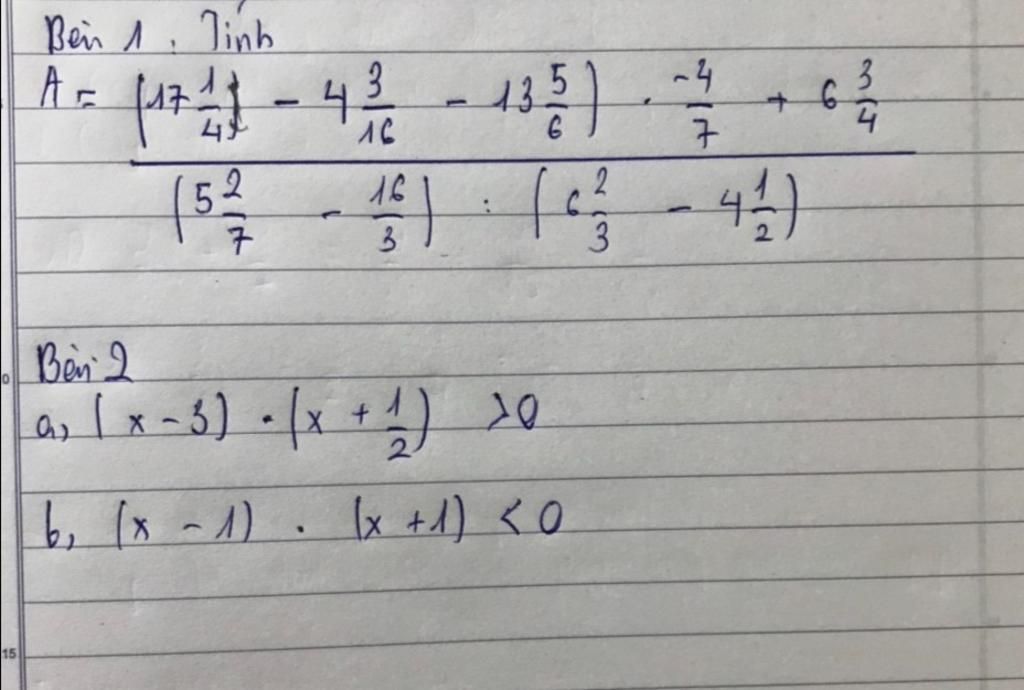 Bài 1. Tính
A = \frac{(17 \frac{1}{4} - 4 \frac{3}{16} - 13 \frac{5}{6}) \cdot \frac{-4}{7} + 6 \frac{3}{4}}{(5 \frac{2}{7} - \frac{16}{3}) : (6 \frac{2}{3} - 4 \frac{1}{2})}
Bài 2
a, (x - 3) \cdot (x + \frac{1}{2}) > 0
b, (x - 1) . (x + 1) < 0
0
15